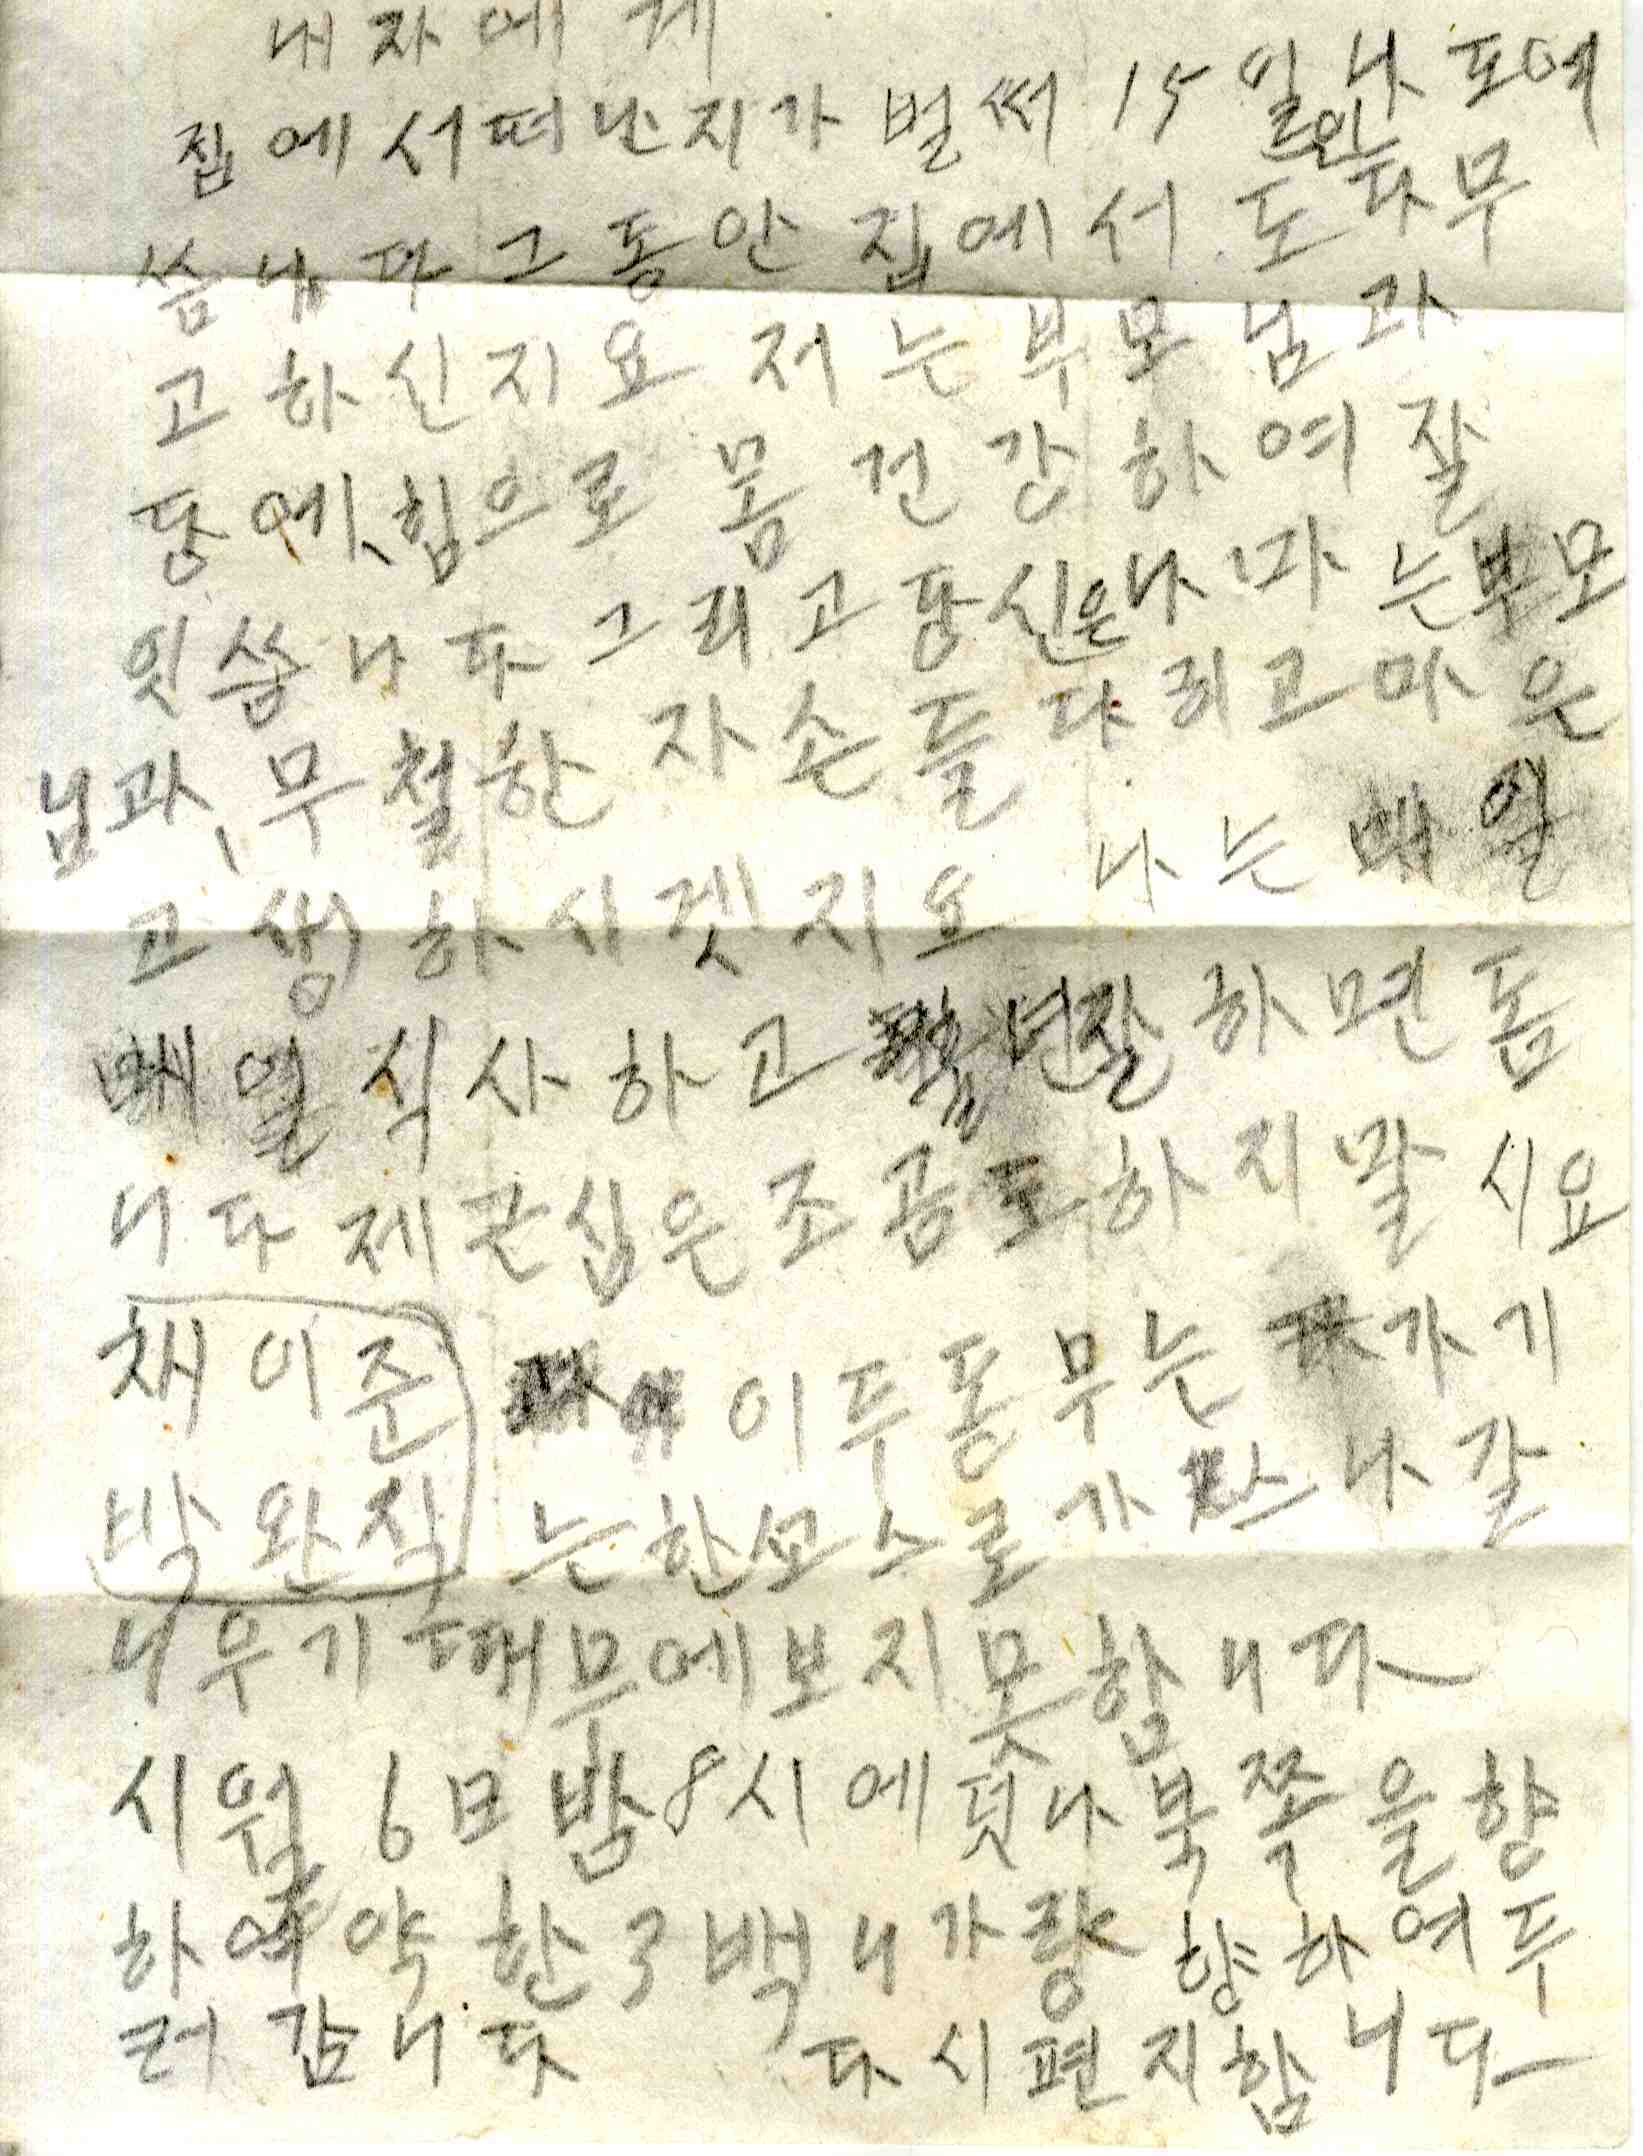 내자에게
집에서떠난지가 벌써 15일나 되여
씀니다 그동안 집에서 도 다 무
고 하신지요 저는 부모님과
당에,힘으로 몸 건강하여 잘
잇씁니다 그리고 당신은 나 따는 부모
님과, 무철한 자손들 다리고 마은
고생하시겟지요 나는 매일
매일 식사하고 년잘 하면 돔
니다 제 관심은 조곰도 하지 말시요
채이준 이두동무는 가기
박완직 는한쏘스로 가 스나 갈
니우기 때무에보지못함니다
시월 6日 밤 8시에 떳나 북쪽을 향
하여 약 한 3백니가량 향하여 두
러감니다 다시 편지함니다